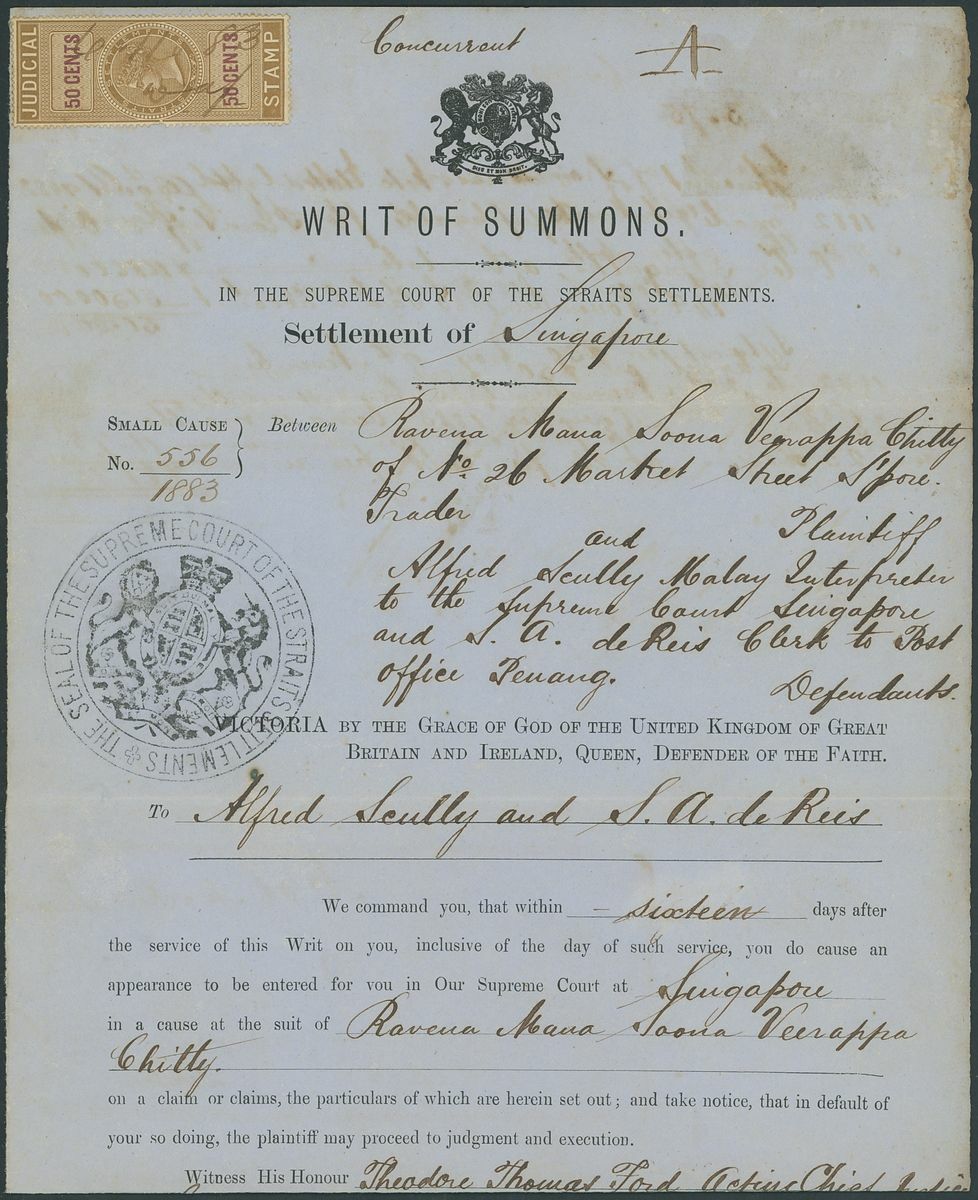 Concurrent
A
JUDICIAL
50 CENTS
50 CENTS
STAMP
DIEU ET MON DROIT.
WRIT OF SUMMONS.
IN THE SUPREME COURT OF THE STRAITS SETTLEMENTS.
Settlement of Singapore
SMALL CAUSE
No. 556
1883
Between Ravena Mana Soona Veerappa Chitty
of No. 26 Market Street S'pore.
Trader Plaintiff
and
Alfred Scully Malay Interpreter
to the Supreme Court Singapore
and S. A. de Reis Clerk to Post
office Penang.
Defendants.
THE SEAL OF THE SUPREME COURT OF THE STRAITS SETTLEMENTS
VICTORIA BY THE GRACE OF GOD OF THE UNITED KINGDOM OF GREAT
BRITAIN AND IRELAND, QUEEN, DEFENDER OF THE FAITH.
To Alfred Scully and S. A. de Reis
We command you, that within - sixteen days after
the service of this Writ on you, inclusive of the day of such service, you do cause an
appearance to be entered for you in Our Supreme Court at Singapore
in a cause at the suit of Ravena Mana Soona Veerappa
Chitty.
on a claim or claims, the particulars of which are herein set out; and take notice, that in default of
your so doing, the plaintiff may proceed to judgment and execution.
Witness His Honour Theodore Thomas Ford Acting Chief Justice